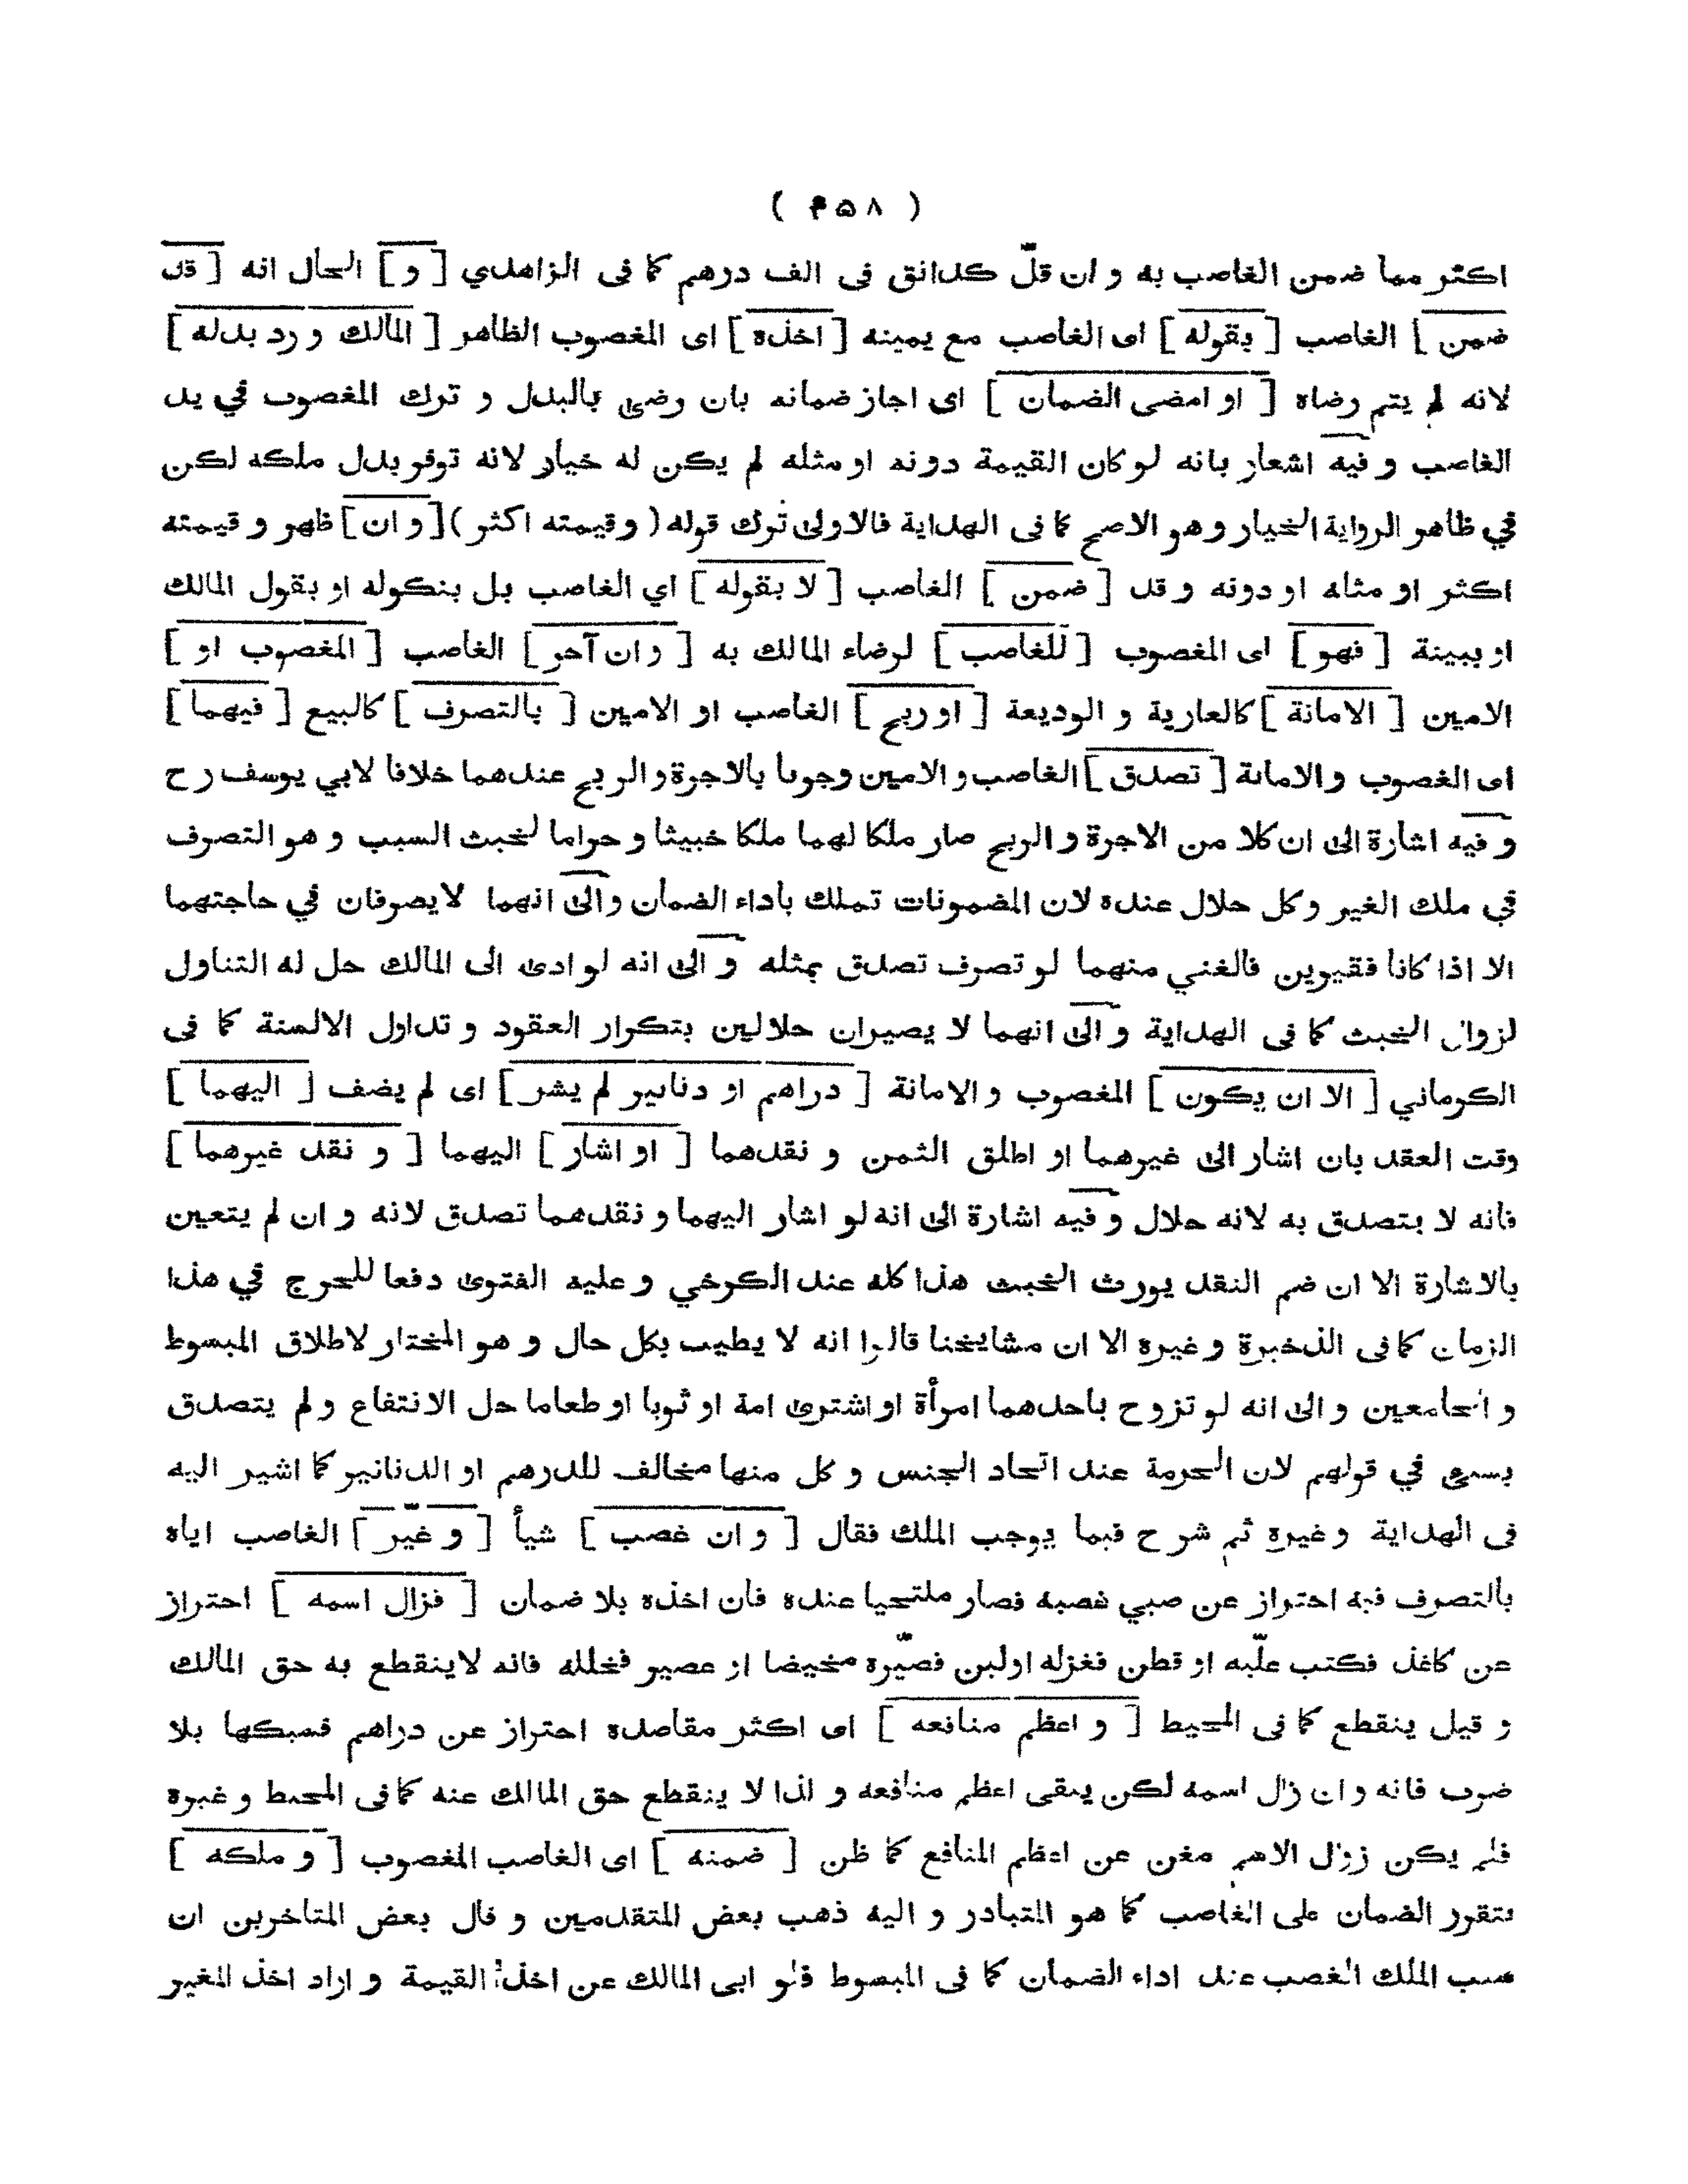 ( ۴۵۸ )
اكثر مما ضمن الغاصب به و ان قلّ كدانق فى الف درهم كما فى الزاهدي [ و ] الحال انه [ قد
ضمن ] الغاصب [ بقوله ] اى الغاصب مع يمينه [ اخذه ] اى المغصوب الظاهر [ المالك و رد بدله ]
لانه لم يتم رضاه [ او امضى الضمان ] اى اجاز ضمانه بان رضى بالبدل و ترك المغصوب في يد
الغاصب و فيه اشعار بانه لو كان القيمة دونه او مثله لم يكن له خيار لانه توفر بدل ملكه لكن
في ظاهر الرواية الخيار و هو الاصح كما فى الهداية فالاولى ترك قوله ( و قيمته اكثر ) [ و ان ] ظهر و قيمته
اكثر او مثله او دونه و قد [ ضمن ] الغاصب [ لا بقوله ] اي الغاصب بل بنكوله او بقول المالك
او ببينة [ فهو ] اى المغصوب [ للغاصب ] لرضاء المالك به [ و ان آجر ] الغاصب [ المغصوب او ]
الامين [ الامانة ] كالعارية و الوديعة [ او ربح ] الغاصب او الامين [ بالتصرف ] كالبيع [ فيهما ]
اى الغصوب و الامانة [ تصدق ] الغاصب و الامين وجوبا بالاجرة و الربح عندهما خلافا لابي يوسف رح
و فيه اشارة الى ان كلا من الاجرة و الربح صار ملكا لهما ملكا خبيثا و حراما لخبث السبب و هو التصرف
في ملك الغير و كل حلال عنده لان المضمونات تملك باداء الضمان و الى انهما لا يصرفان في حاجتهما
الا اذا كانا فقيرين فالغني منهما لو تصرف تصدق بمثله و الى انه لو ادى الى المالك حل له التناول
لزوال الخبث كما فى الهداية و الى انهما لا يصيران حلالين بتكرار العقود و تداول الالسنة كما فى
الكرماني [ الا ان يكون ] المغصوب و الامانة [ دراهم او دنانير لم يشر ] اى لم يضف [ اليهما ]
وقت العقد بان اشار الى غيرهما او اطلق الثمن و نقدهما [ او اشار ] اليهما [ و نقد غيرهما ]
فانه لا يتصدق به لانه حلال و فيه اشارة الى انه لو اشار اليهما و نقدهما تصدق لانه و ان لم يتعين
بالاشارة الا ان ضم النقد يورث الخبث هذا كله عند الكرخي و عليه الفتوى دفعا للحرج في هذا
الزمان كما فى الذخيرة و غيره الا ان مشايخنا قالوا انه لا يطيب بكل حال و هو المختار لاطلاق المبسوط
و الجامعين و الى انه لو تزوج باحدهما امرأة او اشترى امة او ثوبا او طعاما حل الانتفاع و لم يتصدق
بسى في قولهم لان الحرمة عند اتحاد الجنس و كل منها مخالف للدرهم او الدنانير كما اشير اليه
فى الهداية و غيره ثم شرح فيما يوجب الملك فقال [ و ان غصب ] شيأ [ و غيّر ] الغاصب اياه
بالتصرف فيه احتراز عن صبي غصبه فصار ملتحيا عنده فان اخذه بلا ضمان [ فزال اسمه ] احتراز
عن كاغذ فكتب عليه او قطن فغزله او لبن فصيّره مخيضا او عصير فخلله فانه لا ينقطع به حق المالك
و قيل ينقطع كما فى المحيط [ و اعظم منافعه ] اى اكثر مقاصده احتراز عن دراهم فسبكها بلا
ضرب فانه و ان زال اسمه لكن يبقى اعظم منافعه و لذا لا ينقطع حق المالك عنه كما فى المحيط و غيره
فلم يكن زوال الاسم مغن عن اعظم المنافع كما ظن [ ضمنه ] اى الغاصب المغصوب [ و ملكه ]
بتقرر الضمان على الغاصب كما هو المتبادر و اليه ذهب بعض المتقدمين و قال بعض المتاخرين ان
سبب الملك الغصب عند اداء الضمان كما فى المبسوط فلو ابى المالك عن اخذ القيمة و اراد اخذ المغير